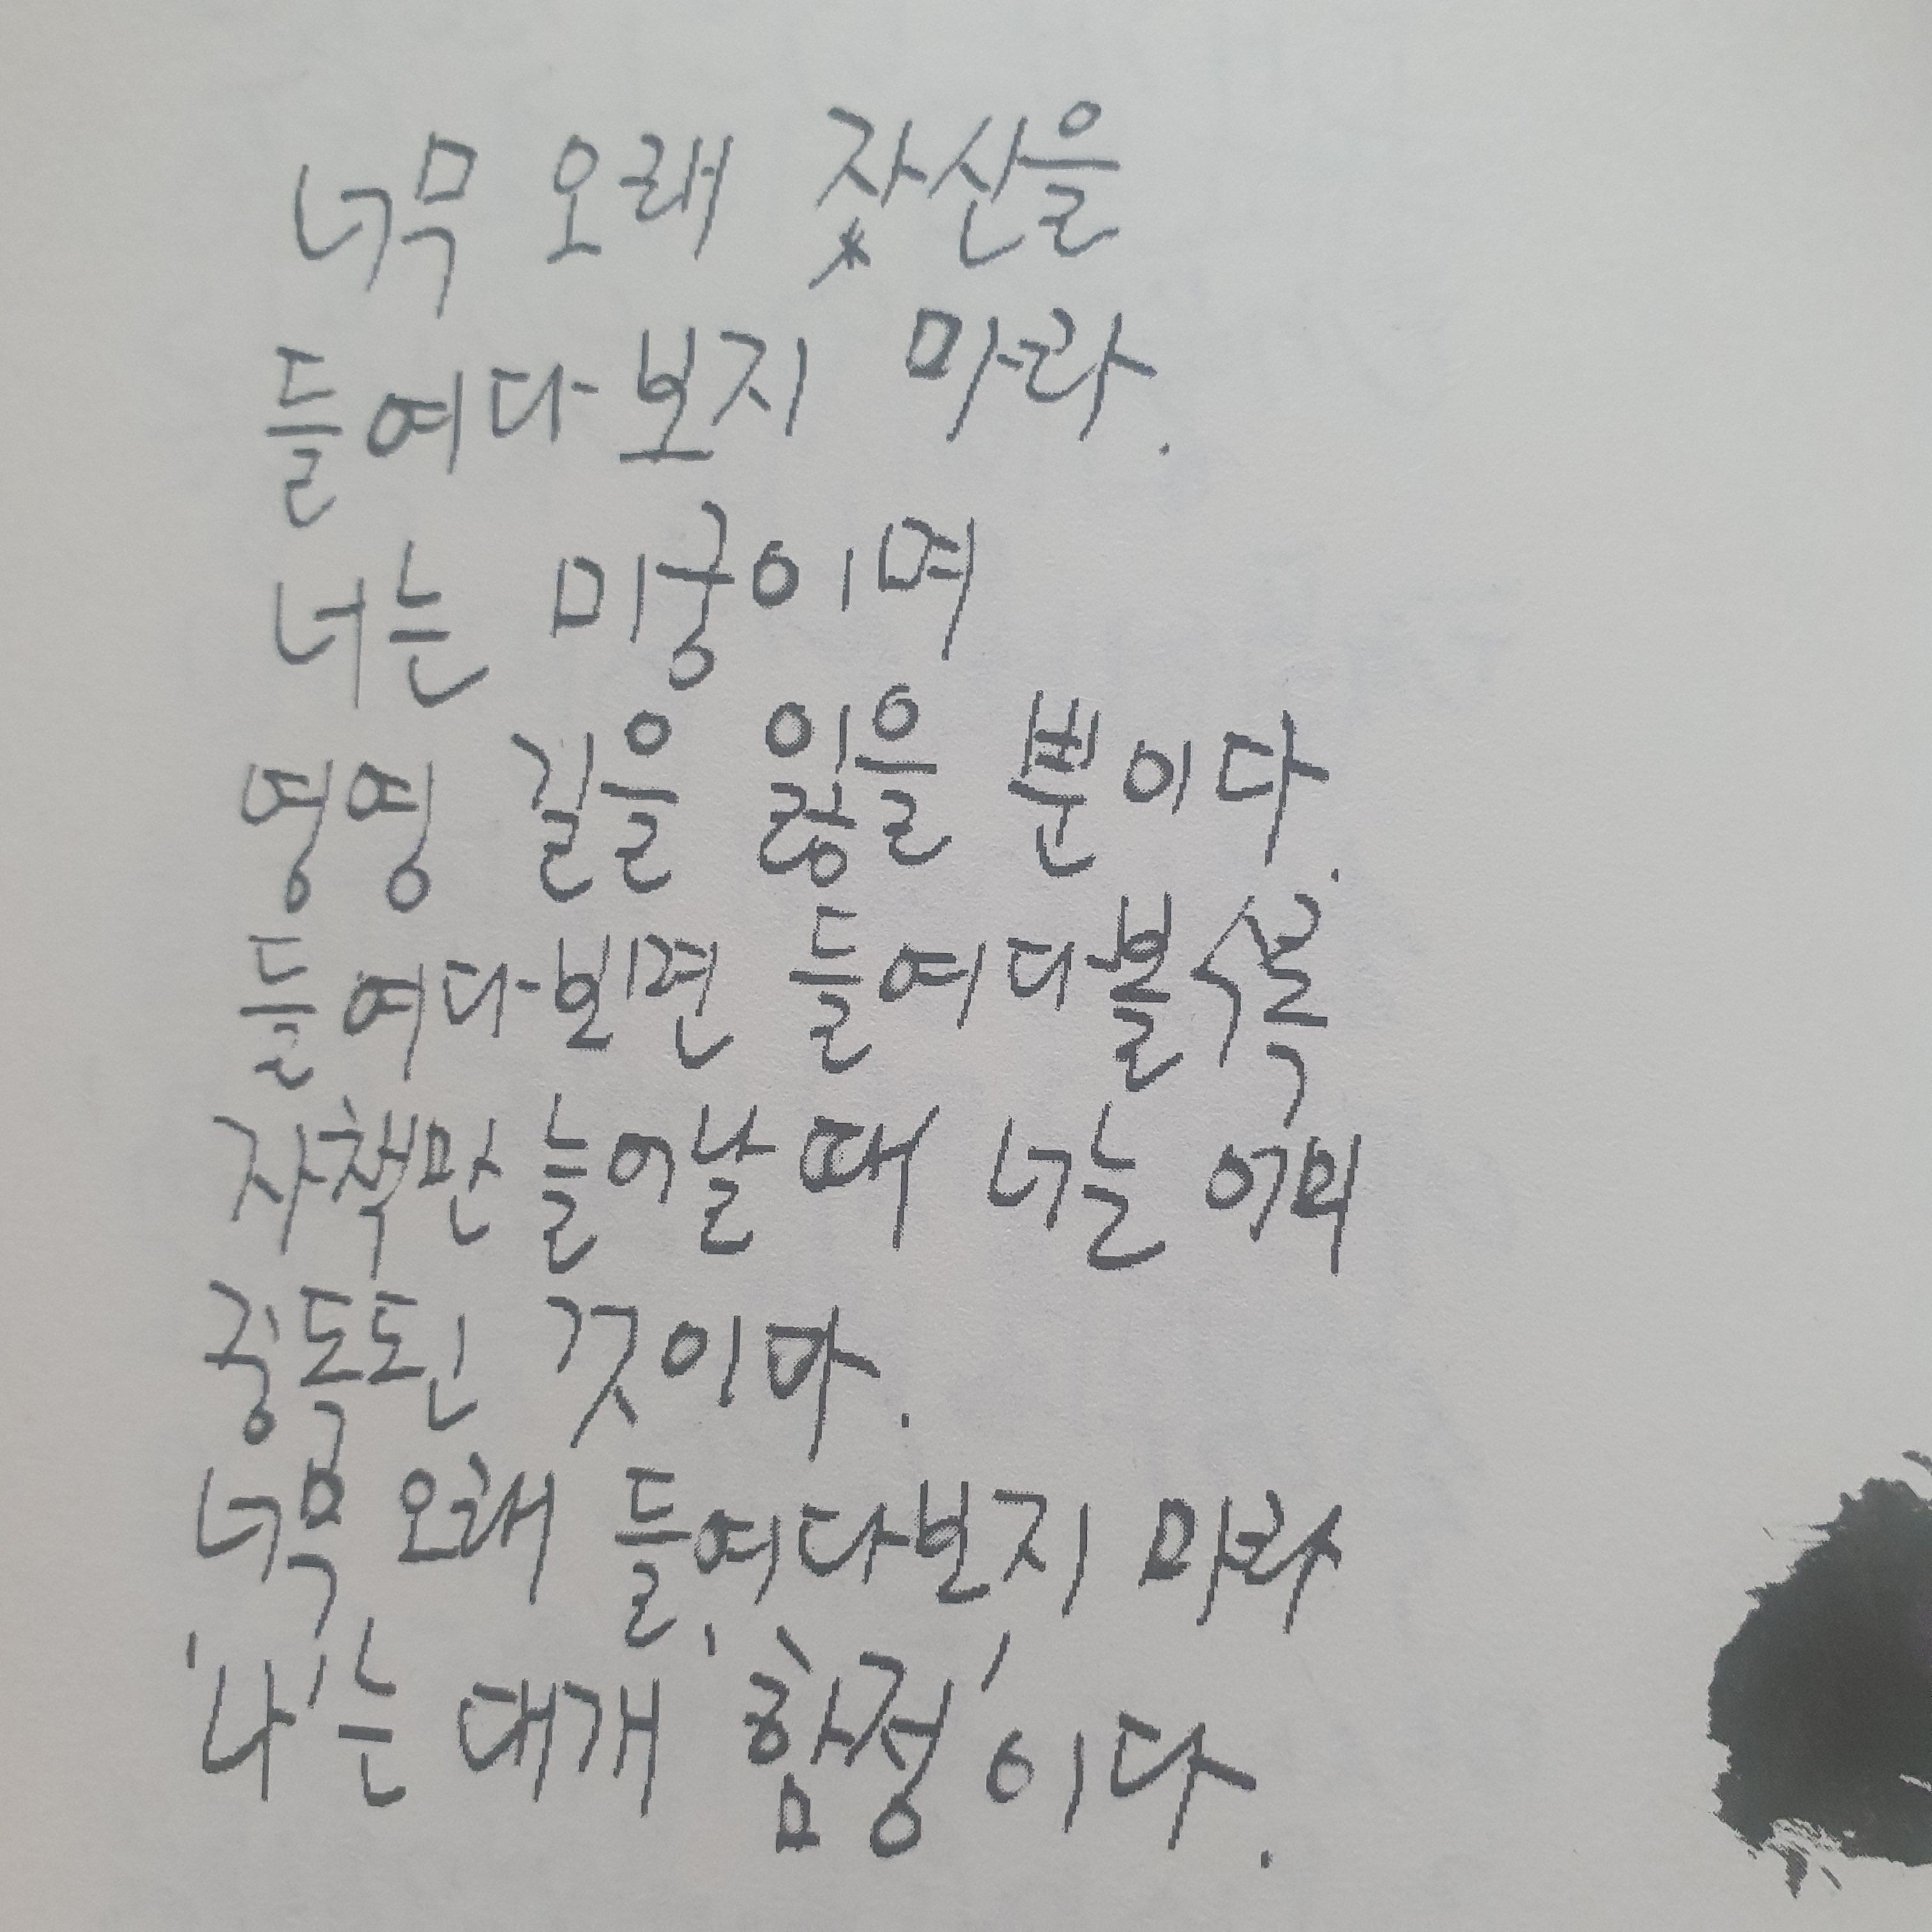 너무 오래 자신을
들여다보지 마라.
너는 미궁이며
영영 길을 잃을 뿐이다.
들여다보면 들여다볼수록
자책만 늘어날 때 너는 이미
중독된 것이다.
너무 오래 들여다보지 마라
'나'는 대개 '함정'이다.